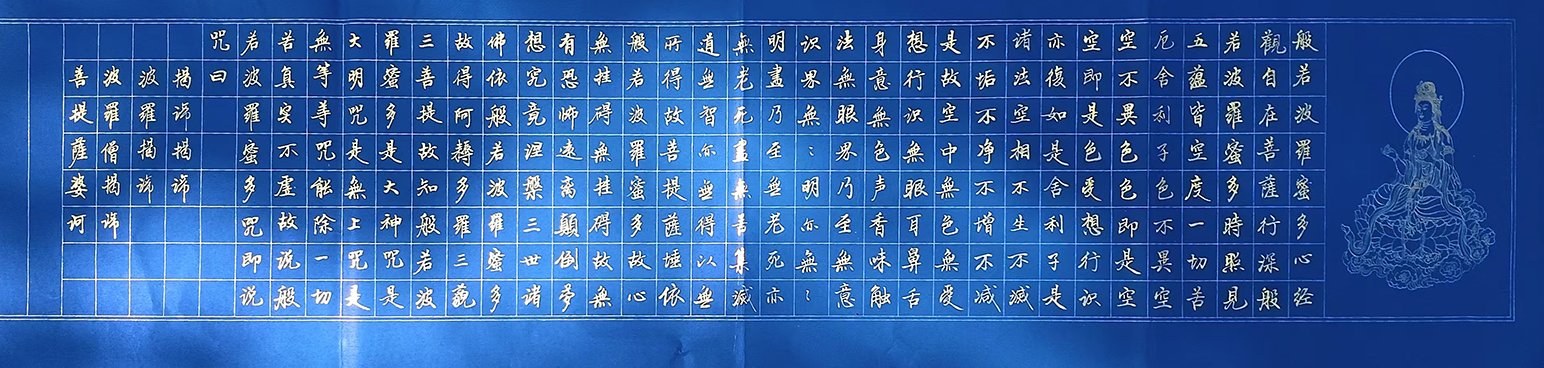 般若波羅蜜多心经
觀自在菩薩行深般
若波羅蜜多時照見
五蕴皆空度一切苦
厄舍利子色不異空
空不異色色即是空
空即是色受想行识
亦復如是舍利子是
诸法空相不生不滅
不垢不净不增不减
是故空中無色無受
想行识無眼耳鼻舌
身意無色声香味触
法無眼界乃至無意
识界無〻明亦無〻
明盡乃至無老死亦
無老死盡無苦集滅
道無智亦無得以無
所得故菩提薩埵依
般若波羅蜜多故心
無挂碍無挂碍故無
有恐怖遠离顛倒夢
想究竟涅槃三世诸
佛依般若波羅蜜多
故得阿耨多羅三藐
三菩提故知般若波
羅蜜多是大神咒是
大明咒是無上咒是
無等等咒能除一切
苦真实不虚故说般
若波羅蜜多咒即说
咒曰
揭谛揭谛
波羅揭谛
波羅僧揭谛
菩提薩婆诃